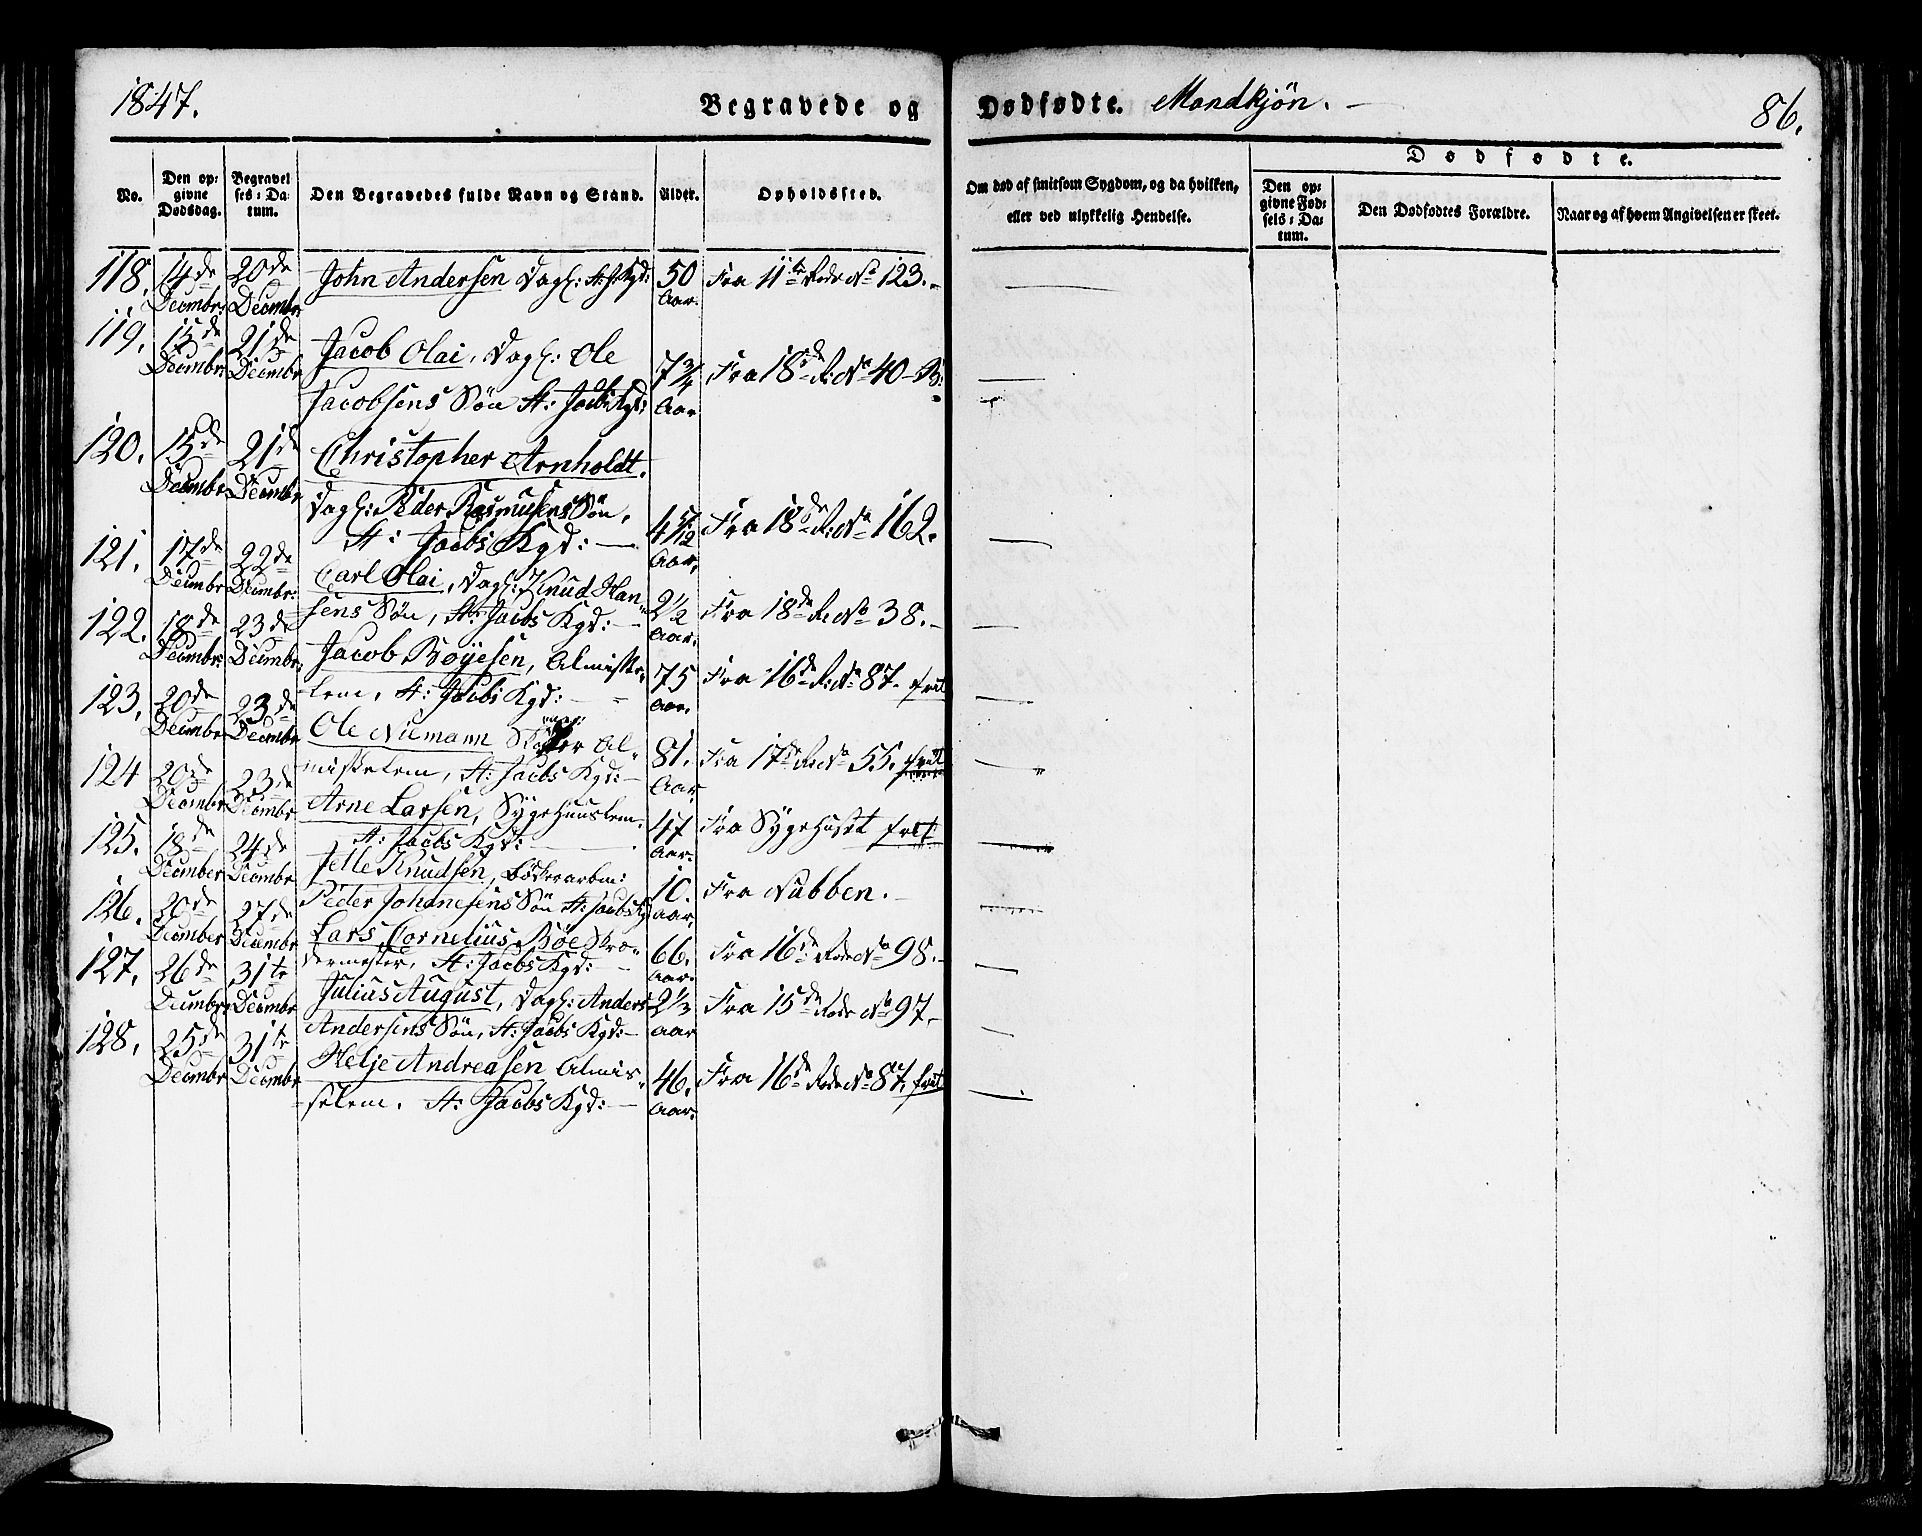 1847.
Begravede og
Dødfødte. Mandkjön. —
86.
No.
Den op-
givne
Dødsdag.
Begravel
ses-Da-
tum.
Den Begravedes fulde Navn og Stand.
Alder.
Opholdssted.
Om død af smitsom Sygdom, og da hvilken,
eller ved ulykkelig Hendelse.
Dødfødte.
Den op-
givne Fød-
sels-Da-
tum.
Den Dødfødtes Forældre.
Naar og af hvem Angivelsen er skeet.
118. 14de Decmbr: 20de Decmbr John Andersen Dagl: St: J: Kgd: 50 Aar. Fra 11te Rode No 123. —
119. 15de Decmbr: 21de Decmbr Jacob Olai, Dagl: Ole
Jacobsens Sön St: Jacobs Kgd: 7 3/4 Aar Fra 18de R: No 40 – B:
120. 15de Decmbr 21de Decmbr Christopher Arnholdt.
Dagl: Peder Rasmusens Sön,
St: Jacobs Kgd: — 4 5/12 Aar, Fra 18de R: No 162.
121. 17de Decmbr 22de Decmbr: Carl Olai, Dagl: Knud Han-
sens Sön, St: Jacobs Kgd: — 2 1/2 Aar. Fra 18de R: No 38. —
122. 18de Decmbr: 23de Decmbr: Jacob Böyesen, Almisse-
lem, St: Jacobs Kgd: — 75 Aar. Fra 16de R: No 87. frit
123. 20de Decmbr 23de Decmbr Ole Niemann Al-
misselem, St: Jacobs Kgd: — 81. Aar Fra 17de R: No 55. frit
124 20de Decmbr 23de Decmbr Arne Larsen, Sygehuuslem.
St: Jacobs Kgd: — 47 Aar. Fra Sygehuset frit
125. 18de Decmber 24de Decmbr Jelle Knudsen, Bödkerarbm:
Peder Johnesens Sön St: Jacobs Kgd 10. Aar, Fra Nubben. —
126. 20de Decmber 27de Decmbr Lars Cornelius Böe Skræ-
dermester, St: Jacobs Kgd: — 66. Aar. Fra 16de Rode No 98. —
127. 26de Decmbr 31te Decmbr Julius August, Dagl: Anders
Andersens Sön, St: Jacobs Kgd: — 2 1/3 Aar Fra 15de Rode No 97. —
128. 25de Decmbr 31te Decmbr Helje Andreasen Almis-
selem. St: Jacobs Kgd: — 46. Aar. Fra 16de Rode No 87. frit